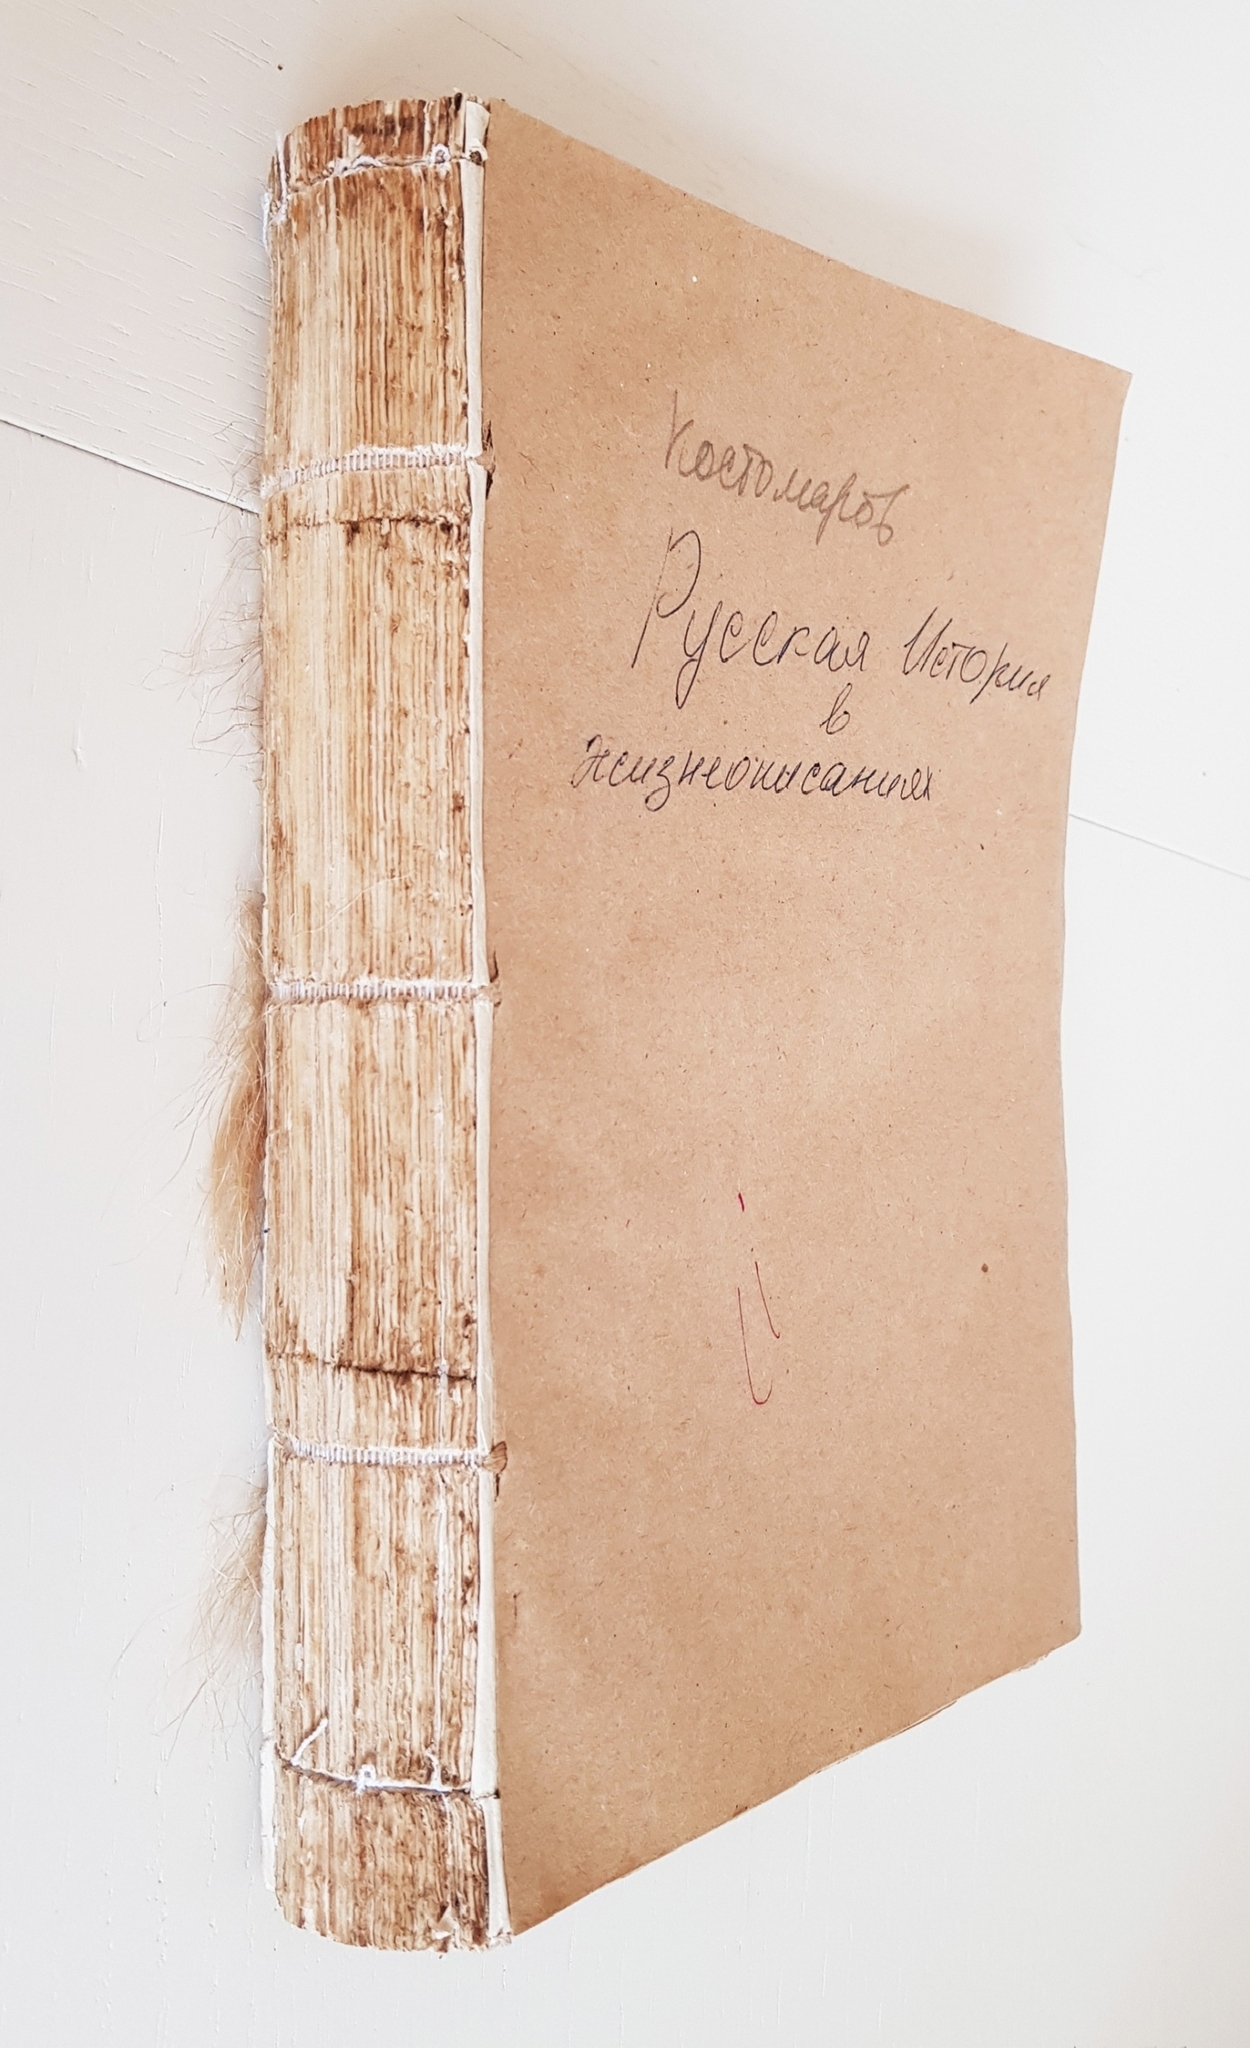 Костомаров
Русская История
в
жизнеописаниях